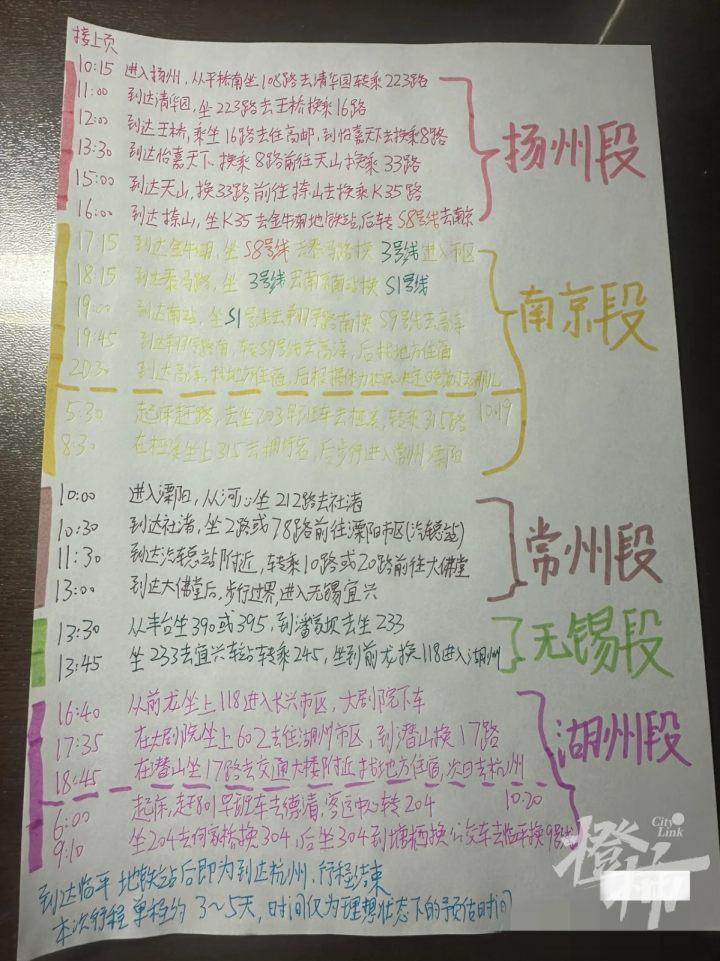 接上页
10:15 进入扬州，从平桥南坐108路去清华园转乘223路
11:00 到达清华园，坐223路去王桥换乘16路
12:00 到达王桥，乘坐16路去往高邮，到怡嘉天下去换乘8路
13:30 到达怡嘉天下，换乘8路前往天山换乘33路
15:00 到达天山，换33路前往捺山去换乘K35路
16:00 到达捺山，坐K35去金牛湖地铁站，后转S8号线去南京
扬州段
17:15 到达金牛湖，坐S8号线去泰冯路换3号线进入市区
18:15 到达泰冯路，坐3号线去南京南站换S1号线
19:00 到达南站，坐S1号线去翔宇路南换S9号线去高淳
19:45 到达翔宇路南，转S9号线去高淳，后找地方住宿
20:30 到达高淳，找地方住宿，后根据体力
南京段
5:30 起床赶路，去坐203早班车去桠溪，转乘315路 10.19
8:30 在桠溪坐上315去，后步行进入常州溧阳
10:00 进入溧阳，从河心坐212路去社渚
10:30 到达社渚，坐2路或78路前往溧阳市区(汽车总站)
11:30 到达汽车总站附近，转乘10路或20路前往大佛堂
13:00 到达大佛堂后，步行过界，进入无锡宜兴
常州段
13:30 从丰台坐390或395，到潘家坝去坐233
13:45 坐233去宜兴车站转乘245，坐到前龙换118进入湖州
无锡段
16:40 从前龙坐上118进入长兴市区，大剧院下车
17:35 在大剧院坐上602去往湖州市区，到潜山换17路
18:45 在潜山坐17路去交通大楼附近找地方住宿，次日去杭州
湖州段
6:00 起床，赶801早班车去德清，客运中心转204 10.20
9:10 坐204去何家桥换304，后坐304到塘栖换公交车去临平换9号线
到达临平地铁站后即为到达杭州，行程结束
本次行程单程约3~5天，时间仅为理想状态下的预估时间
橙柿
City Link